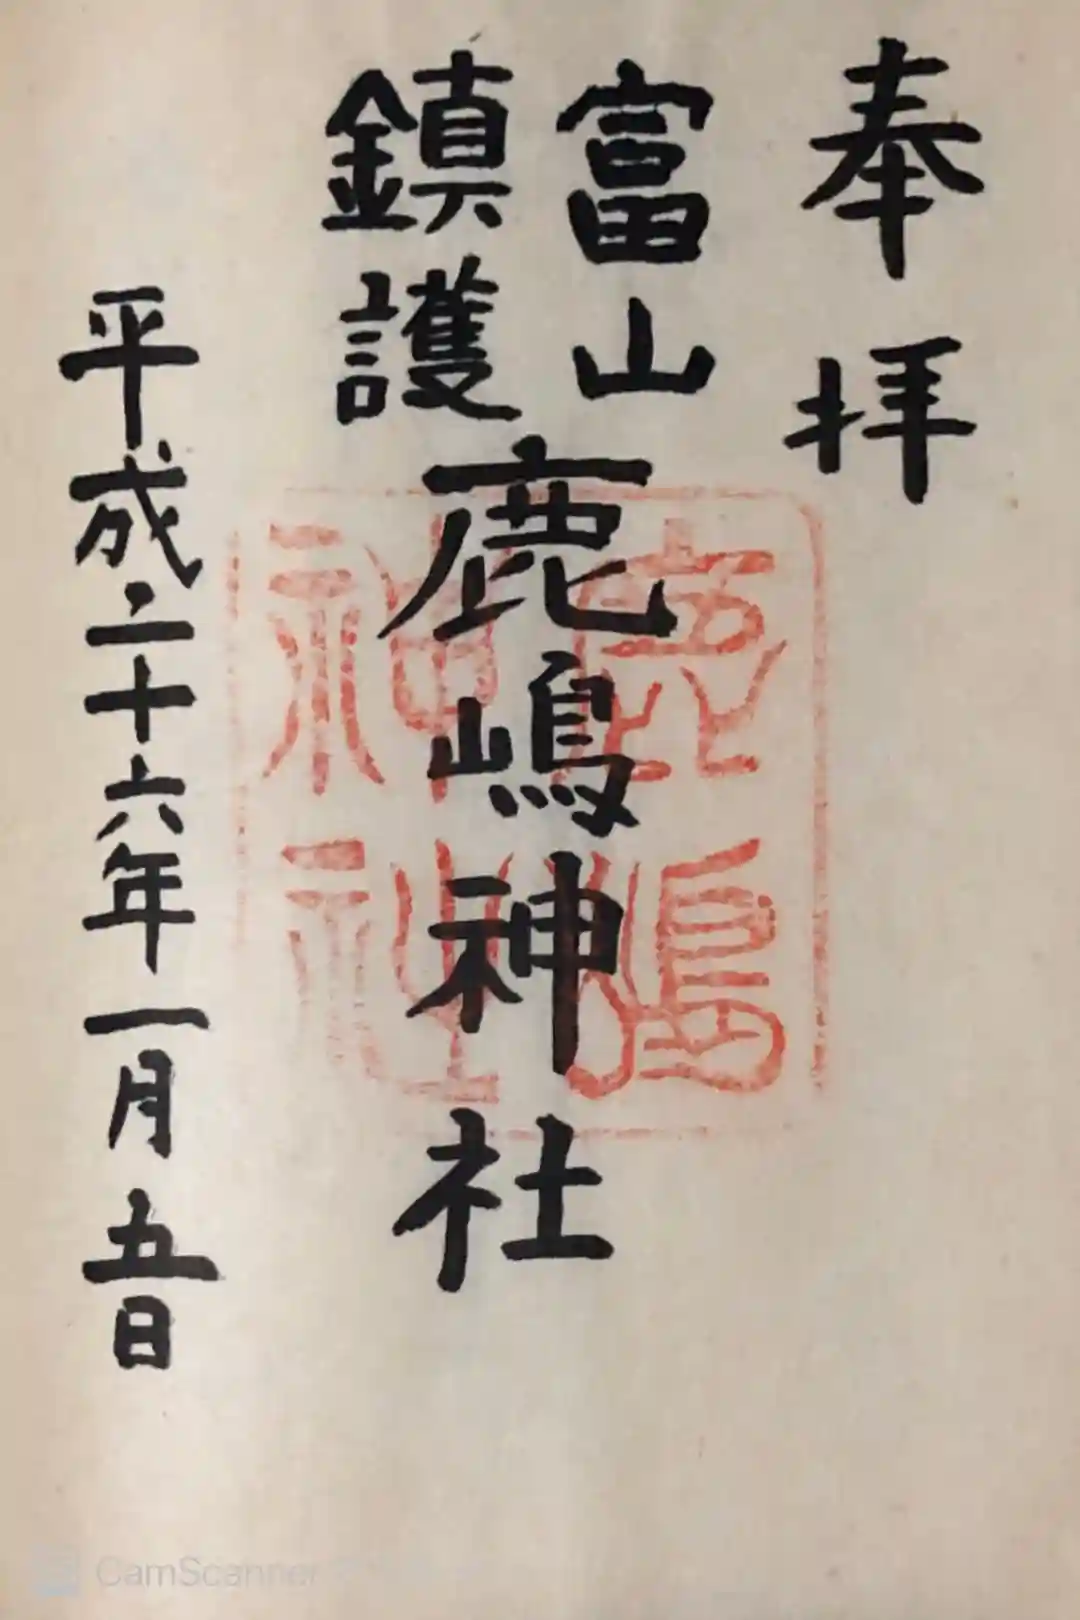 奉拝
富山
鎮護
鹿嶋神社
平成二十六年一月五日
鹿嶋
神社
CamScanner